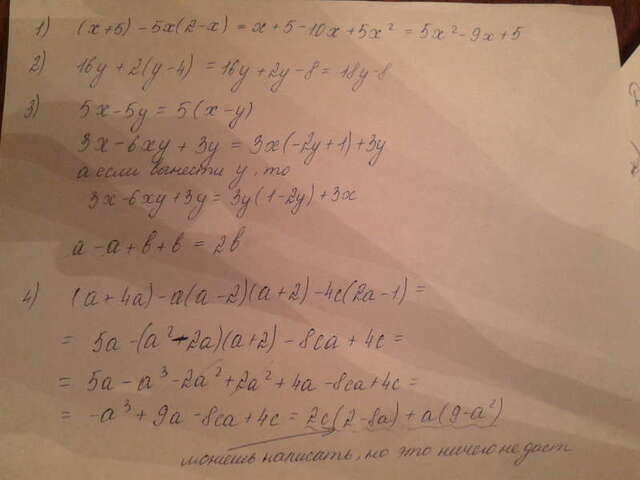 1) (x+5) - 5x(2-x) = x+5-10x+5x² = 5x²-9x+5
2) 16y + 2(y-4) = 16y+2y-8 = 18y-8
3) 5x-5y = 5(x-y)
3x-6xy+3y = 3x(-2y+1)+3y
а если вынести y, то
3x-6xy+3y = 3y(1-2y)+3x
a-a+b+b = 2b
4) (a+4a)-a(a-2)(a+2)-4c(2a-1) =
= 5a-(a²-2a)(a+2)-8ca+4c =
= 5a-a³-2a²+2a²+4a-8ca+4c =
= -a³+9a-8ca+4c = 2c(2-8a)+a(9-a²)
можешь написать, но это ничего не даст